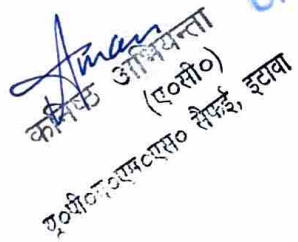 Aman
कनिष्ठ अभियन्ता
(ए०सी०)
यू०पी०यू०एम०एस० सैफई, इटावा